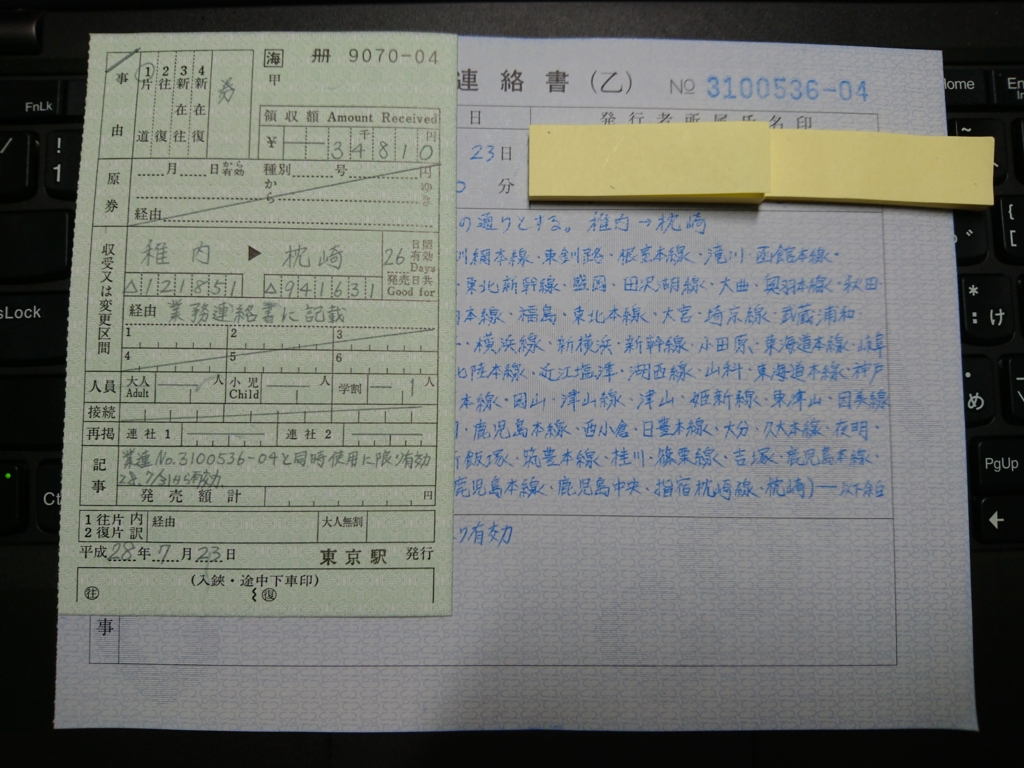 海 冊 9070-04
甲
事由
1片道 2往復 3新在往 4新在復
券
領収額 Amount Received
¥ 34810 千 円
原券
月 日から有効 種別 号 円
から ゆき
経由
収受又は変更区間
稚内 ▶ 枕崎 26 日間有効 Days
△121851 △941631 発売日共 Good for
経由 業務連絡書に記載
1 2 3
4 5 6
人員 大人 Adult 人 小児 Child 人 学割 1 人
接続
再掲 連社1 連社2
記事
業連No.3100536-04と同時使用に限り有効
28.7/31から有効
発売額計 円
1往片内 2復片訳 経由 大人無割
平成28年7月23日 東京駅 発行
(入鋏・途中下車印)
往 復
連絡書(乙) No 3100536-04
日 発行者所属氏名印
23日
分
の通りとする。稚内→枕崎
網本線・東釧路・根室本線・滝川・函館本線・
東北新幹線・盛岡・田沢湖線・大曲・奥羽本線・秋田
本線・福島・東北本線・大宮・埼京線・武蔵浦和
横浜線・新横浜・新幹線・小田原・東海道本線・岐阜
北陸本線・近江塩津・湖西線・山科・東海道本線・神戸
本線・岡山・津山線・津山・姫新線・東津山・因美線
・鹿児島本線・西小倉・日豊本線・大分・久大本線・夜明・
新飯塚・筑豊本線・桂川・篠栗線・吉塚・鹿児島本線・
鹿児島本線・鹿児島中央・指宿枕崎線・枕崎)―以下余白
り有効
事
FnLk
Home
PgUp